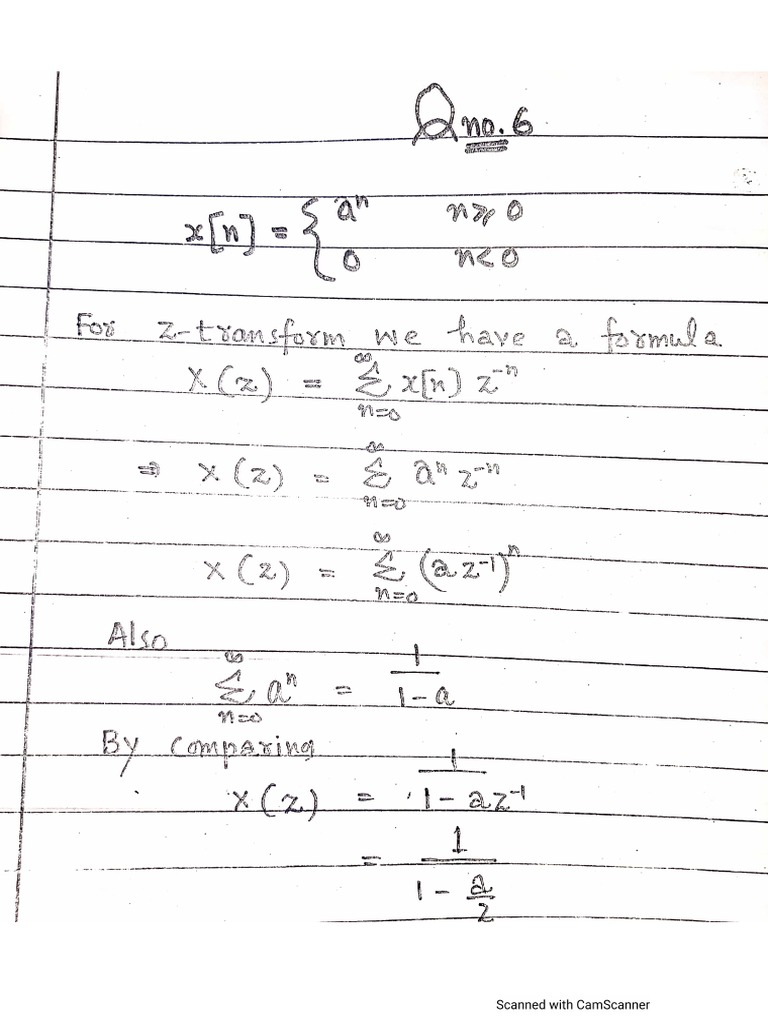 Q no. 6
x[n] = { aⁿ n ≥ 0
0 n < 0
For z-transform we have a formula
X(z) = ∑_{n=0}^{∞} x[n] z⁻ⁿ
⇒ X(z) = ∑_{n=0}^{∞} aⁿ z⁻ⁿ
X(z) = ∑_{n=0}^{∞} (a z⁻¹)ⁿ
Also
∑_{n=0}^{∞} aⁿ = 1/(1 - a)
By comparing
X(z) = 1/(1 - az⁻¹)
= 1/(1 - a/z)
Scanned with CamScanner